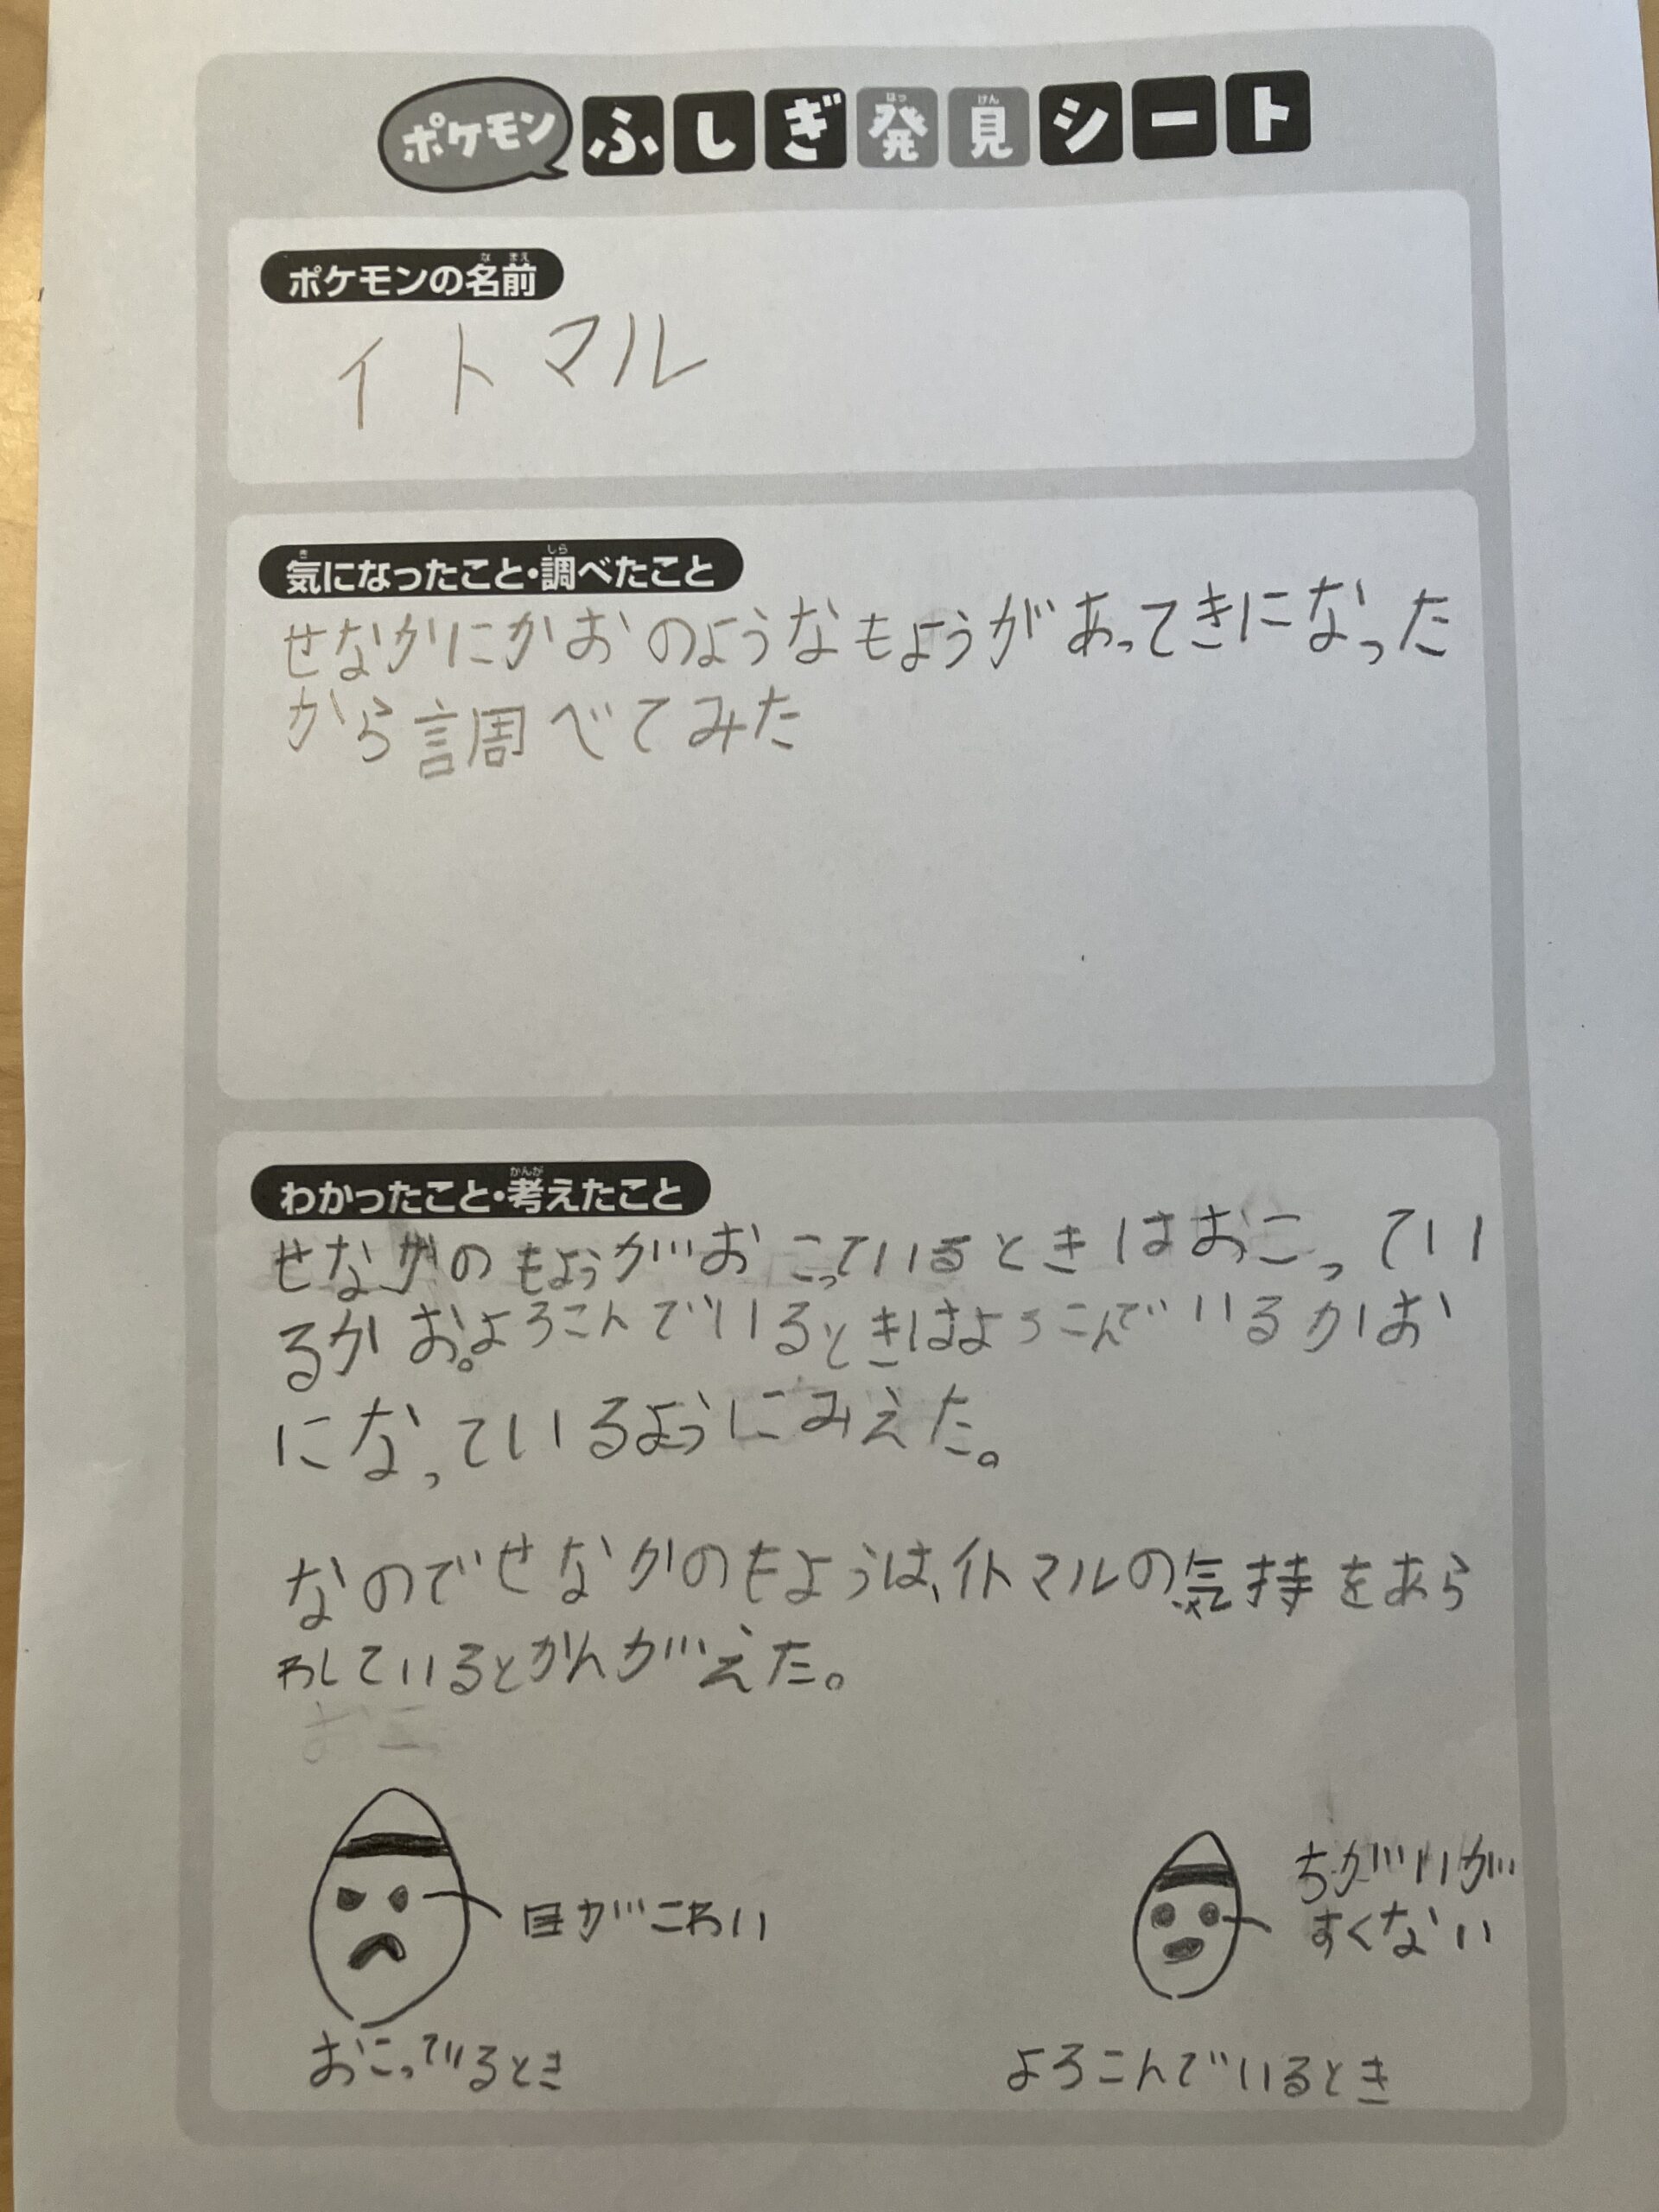 ポケモン ふしぎ発見シート
ポケモンの名前
イトマル
気になったこと・調べたこと
せなかにかおのようなもようがあってきになった
から調べてみた
わかったこと・考えたこと
せなかのもようがおこっているときはおこってい
るかお。よろこんでいるときはよろこんでいるかお
になっているようにみえた。
なのでせなかのもようは、イトマルの気持をあら
わしているとかんがえた。
おこ
目がこわい
ちがいが
すくない
おこっているとき
よろこんでいるとき